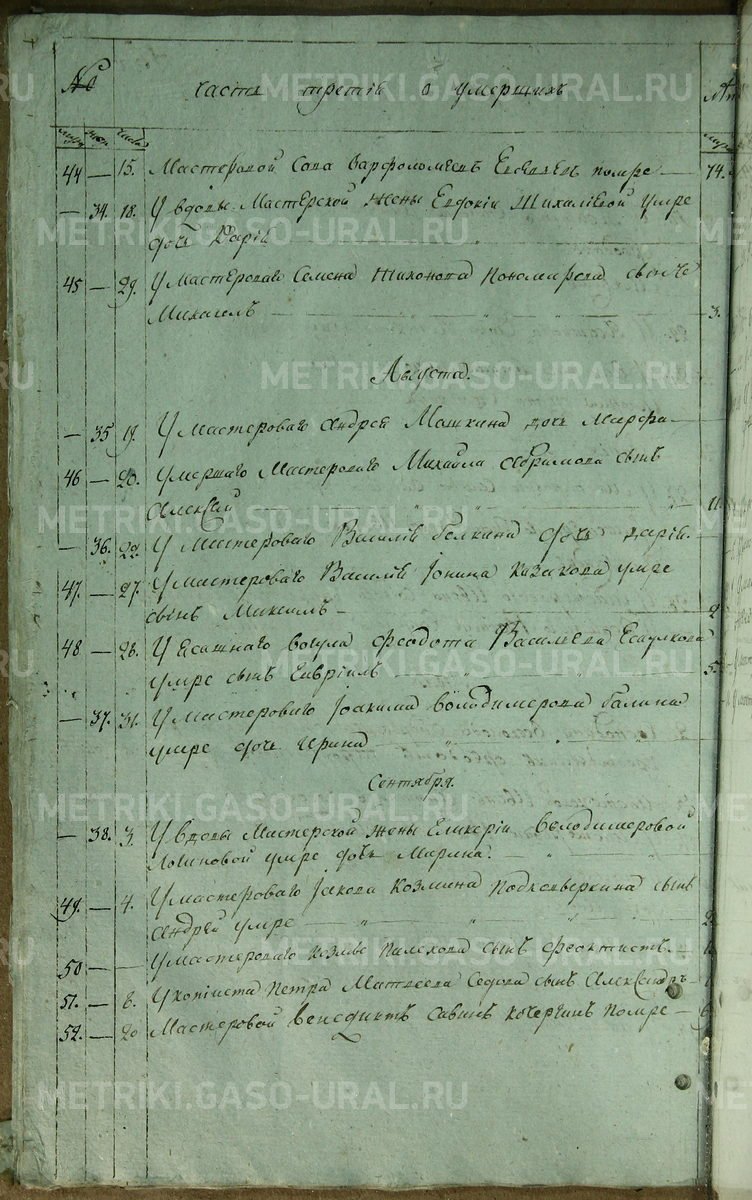 № Часть третія о умершихъ
44 — 15. Мастеровой Савва Варфоломеевъ помре — 74.
— 34. 18. У вдовы Мастерской жены Евдокіи умре
дочь Дарія
45 — 29. У Мастероваго Семена Тихонова Пономарева сынъ
Михаилъ — 3.
Августа.
— 35 19. У Мастероваго Андрея Машкина дочь Марфа
46 — 20. Умершаго Мастероваго Михаила Абрамова сынъ
Алексей — 11.
— 36. 22. У Мастероваго Василія Белкина дочь Дарія.
47. — 27. У Мастероваго Василія Іонина Казакова умре
сынъ Максимъ — 2
48 — 28. У Ясашнаго вогула Феодота Васильева Есаулкова
умре сынъ Гавріилъ — 5.
— 37. 31. У Мастероваго Іоакима Володимерова Галина
умре дочь Ирина
Сентября.
— 38. 3. У вдовы Мастерской жены Гликеріи Володимеровой
Логиновой умре дочь Марина.
49. — 4. У мастероваго Іякова Козмина Подкаверкина сынъ
Андрей умре
50 — У мастероваго Козмы Палехова сынъ Феоктистъ.
51. — 8. У копіиста Петра Матвеева Седова сынъ Александръ
52. — 20 Мастеровой Венедиктъ Савинъ Кочергинъ помре
METRIKI.GASO-URAL.RU